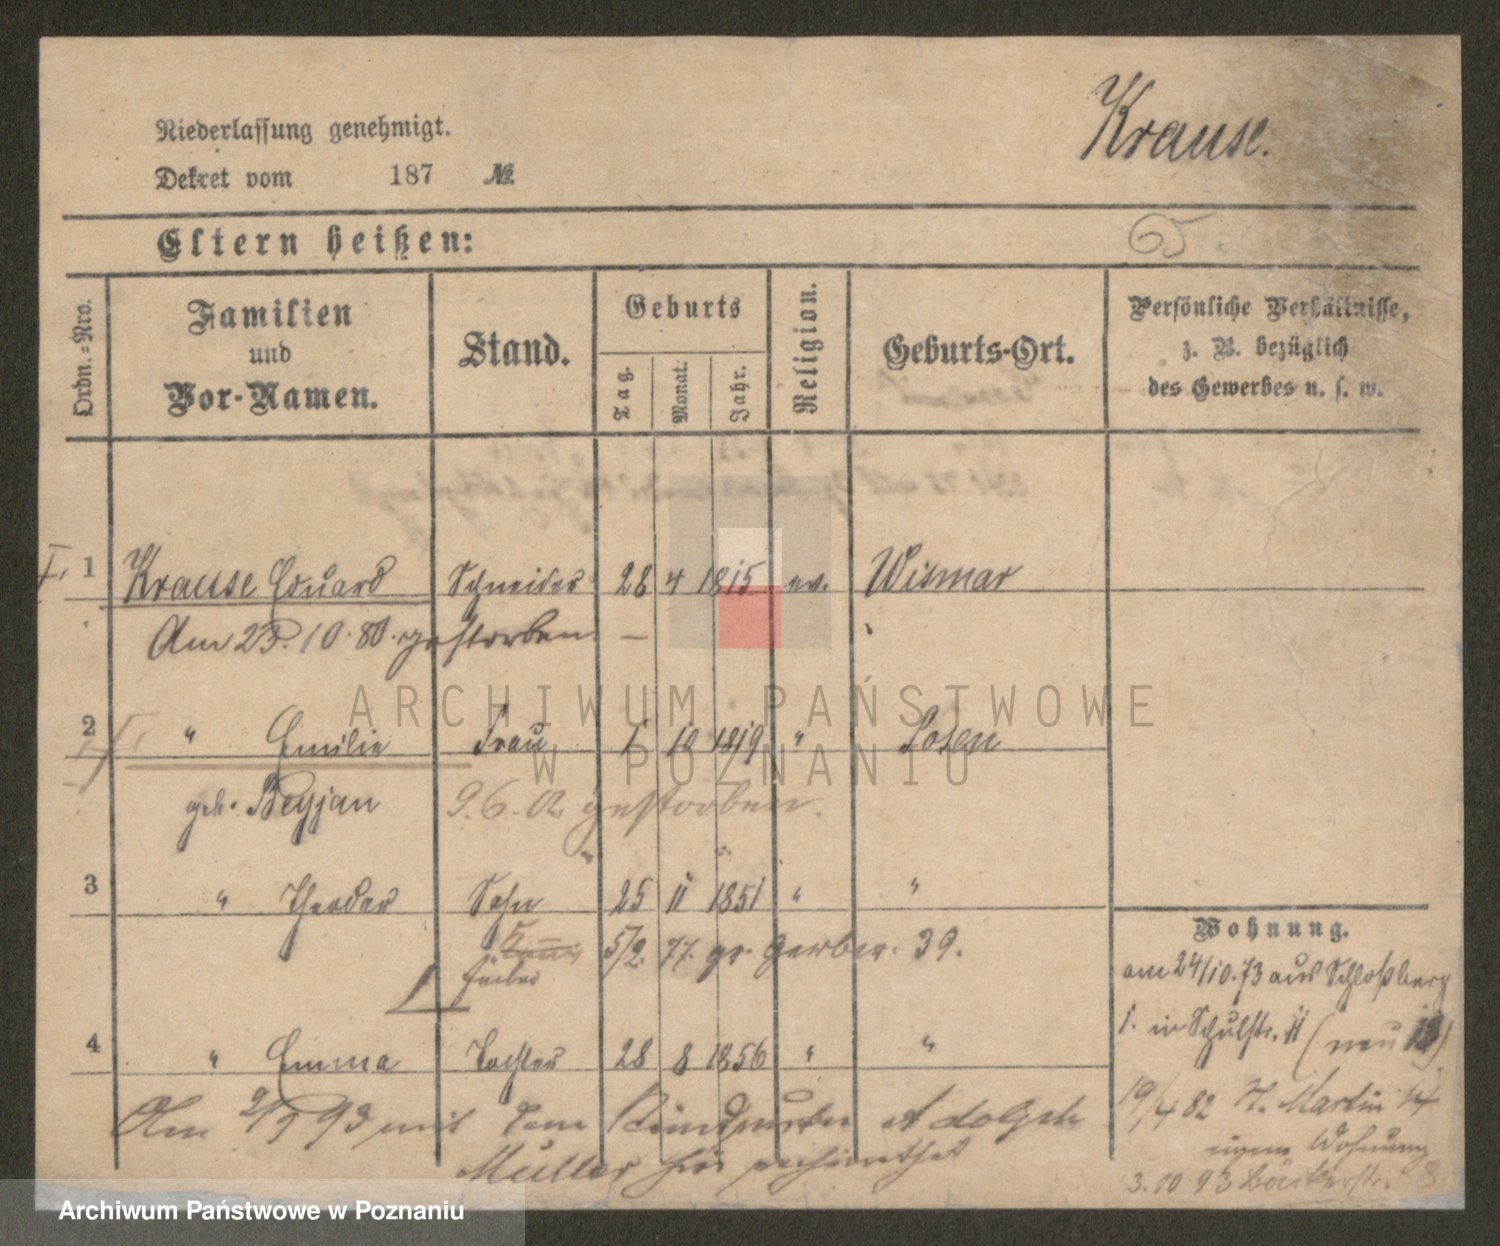 Krause.
Niederlassung genehmigt.
Dekret vom 187 №.
Eltern heißen:
Ordn.=Nro.
Familien und Vor-Namen.
Stand.
Geburts
Tag. Monat. Jahr.
Religion.
Geburts-Ort.
Persönliche Verhältnisse, z. B. bezüglich des Gewerbes u. s. w.
I. 1 Krause Eduard Schneider 28 4 1815 ev. Wismar
Am 23. 10. 80. gestorben —
2 " Emilie Frau 1 10 1819 " Posen
geb. Beyjan 9. 6. 02 gestorben.
3 " Theodor Sohn 25 11 1851 " "
5/2. 77. gr. Gerber. 39.
Färber
4 " Emma Tochter 28 8 1856 " "
Am 93 mit dem Adolph
Müller hier
Wohnung.
am 24/10. 73 aus Schloßberg
1. in Schulstr. 11 (neu 13)
19/4 82 St. Martin 14
eigene Wohnung
3. 10 93 Bäckerstr.
ARCHIWUM PAŃSTWOWE
W POZNANIU
Archiwum Państwowe w Poznaniu